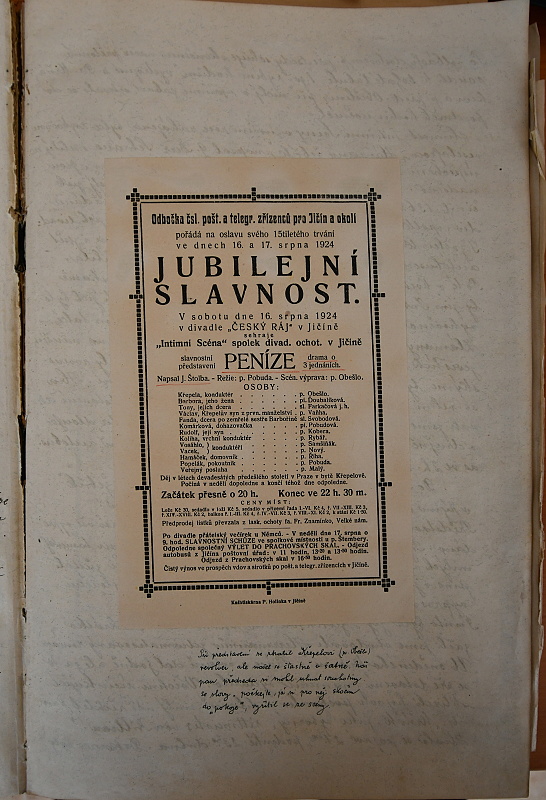 Odbočka čsl. pošt. a telegr. zřízenců pro Jičín a okolí
pořádá na oslavu svého 15tiletého trvání
ve dnech 16. a 17. srpna 1924
JUBILEJNÍ
SLAVNOST.
V sobotu dne 16. srpna 1924
v divadle „ČESKÝ RÁJ“ v Jičíně
sehraje
„Intimní Scéna“ spolek divad. ochot. v Jičíně
slavnostní představení PENÍZE drama o 3 jednáních.
Napsal J. Štolba. - Režie: p. Pobuda. - Scén. výprava: p. Obešlo.
OSOBY:
Křepela, konduktér . . . . . . p. Obešlo.
Barbora, jeho žena . . . . . . pí. Doubalíková.
Tony, jejich dcera . . . . . . sl. Farkačová j. h.
Václav, Křepelův syn z prvn. manželství . p. Vaňha.
Fanda, dcera po zemřelé sestře Barbořině sl. Svobodová.
Komárková, dohazovačka . . . . pí. Pobudová.
Rudolf, její syn . . . . . . p. Kobera.
Koliha, vrchní konduktér . . . . p. Rybář.
Vosáhlo, ) konduktéři . . . . p. Samšiňák.
Vacek, ) . . . . p. Nový.
Hanáček, domovník . . . . . p. Říha.
Popelák, pokoutník . . . . . p. Pobuda.
Veřejný posluha . . . . . . p. Malý.
Děj v létech devadesátých předešlého století v Praze v bytě Křepelově.
Počíná v neděli dopoledne a končí téhož dne odpoledne.
Začátek přesně o 20 h. Konec ve 22 h. 30 m.
CENY MÍST:
Lože Kč 30, sedadlo v loži Kč 5, sedadlo v přízemí řada I.-VI. Kč 6, ř. VII.-XIII. Kč 5,
ř. XIV.-XVIII. Kč 2, balkon ř. I.-III. Kč 4, ř. IV.-VII. Kč 3, ř. VIII.-XI. Kč 2, k stání Kč 1·50.
Předprodej lístků převzala z lask. ochoty fa. Fr. Znamínko, Velké nám.
Po divadle přátelský večírek u Němců. - V neděli dne 17. srpna o
9. hod. SLAVNOSTNÍ SCHŮZE ve spolkové místnosti u p. Šlembery.
Odpoledne společný VÝLET DO PRACHOVSKÝCH SKAL. - Odjezd
autobusů z Jičína poštovní úřad: v 11 hodin, 13·30 a 13·60 hodin.
Odjezd z Prachovských skal v 16·30 hodin.
Čistý výnos ve prospěch vdov a sirotků po pošt. a telegr. zřízencích v Jičíně.
Knihtiskárna F. Hollака v Jičíně
představení se ztratil Křepelovi (p. Obešlo)
revolver, ale našel se šťastně v šatně. Než
pan předseda si mohl uhnat souchotiny
se slovy „počkejte, já si pro něj skočím
do „pokoje“, vyřítil se ze scény.